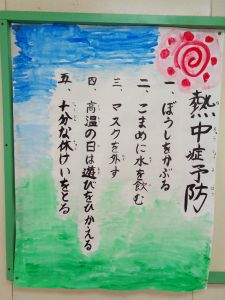 熱中症予防
一、ぼうしをかぶる
二、こまめに水を飲む
三、マスクを外す
四、高温の日は遊びをひかえる
五、十分な休けいをとる